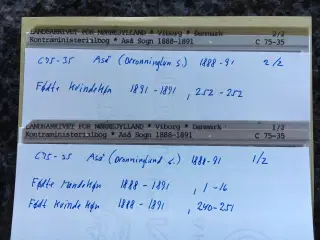 LANDSARKIVET FOR NØRREJYLLAND * Viborg * Danmark 2/2
Kontraministerilbog * Aså Sogn 1888-1891 C 75-35
C75-35 Aså (Dronninglun S.) 1888-91 2/2
Fødte Kvindekøn 1891-1891, 252-252
LANDSARKIVET FOR NØRREJYLLAND * Viborg * Danmark 1/2
Kontraministerilbog * Aså Sogn 1888-1891 C 75-35
C75-35 Aså (Dronninglund S.) 1888-91 1/2
Fødte Mandekøn 1888-1891, 1-16
Født Kvindekøn 1888-1891, 240-251